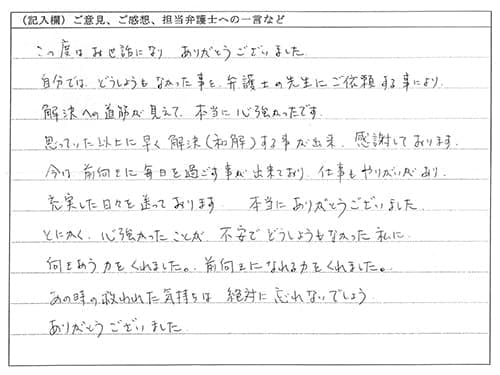 (記入欄) ご意見、ご感想、担当弁護士への一言など
この度はお世話になり ありがとうございました
自分では、どうしようもなかった事を、弁護士の先生にご依頼する事により、
解決への道筋が見えて、本当に心強かったです。
思っていた以上に早く解決(和解)する事が出来、感謝しております。
今は前向きに毎日を過ごす事が出来ており、仕事もやりがいがあり、
充実した日々を送っております 本当にありがとうございました
とにかく、心強かったことが、不安でどうしようもなかった私に、
向きあう力をくれました。前向きになれる力をくれました。
あの時の救われた気持ちは 絶対に忘れないでしょう
ありがとうございました